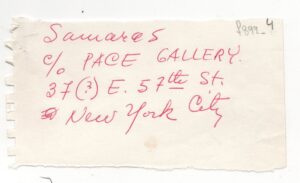 Samaras
c/o PACE GALLERY.
37(?) E. 57th St.
New York City